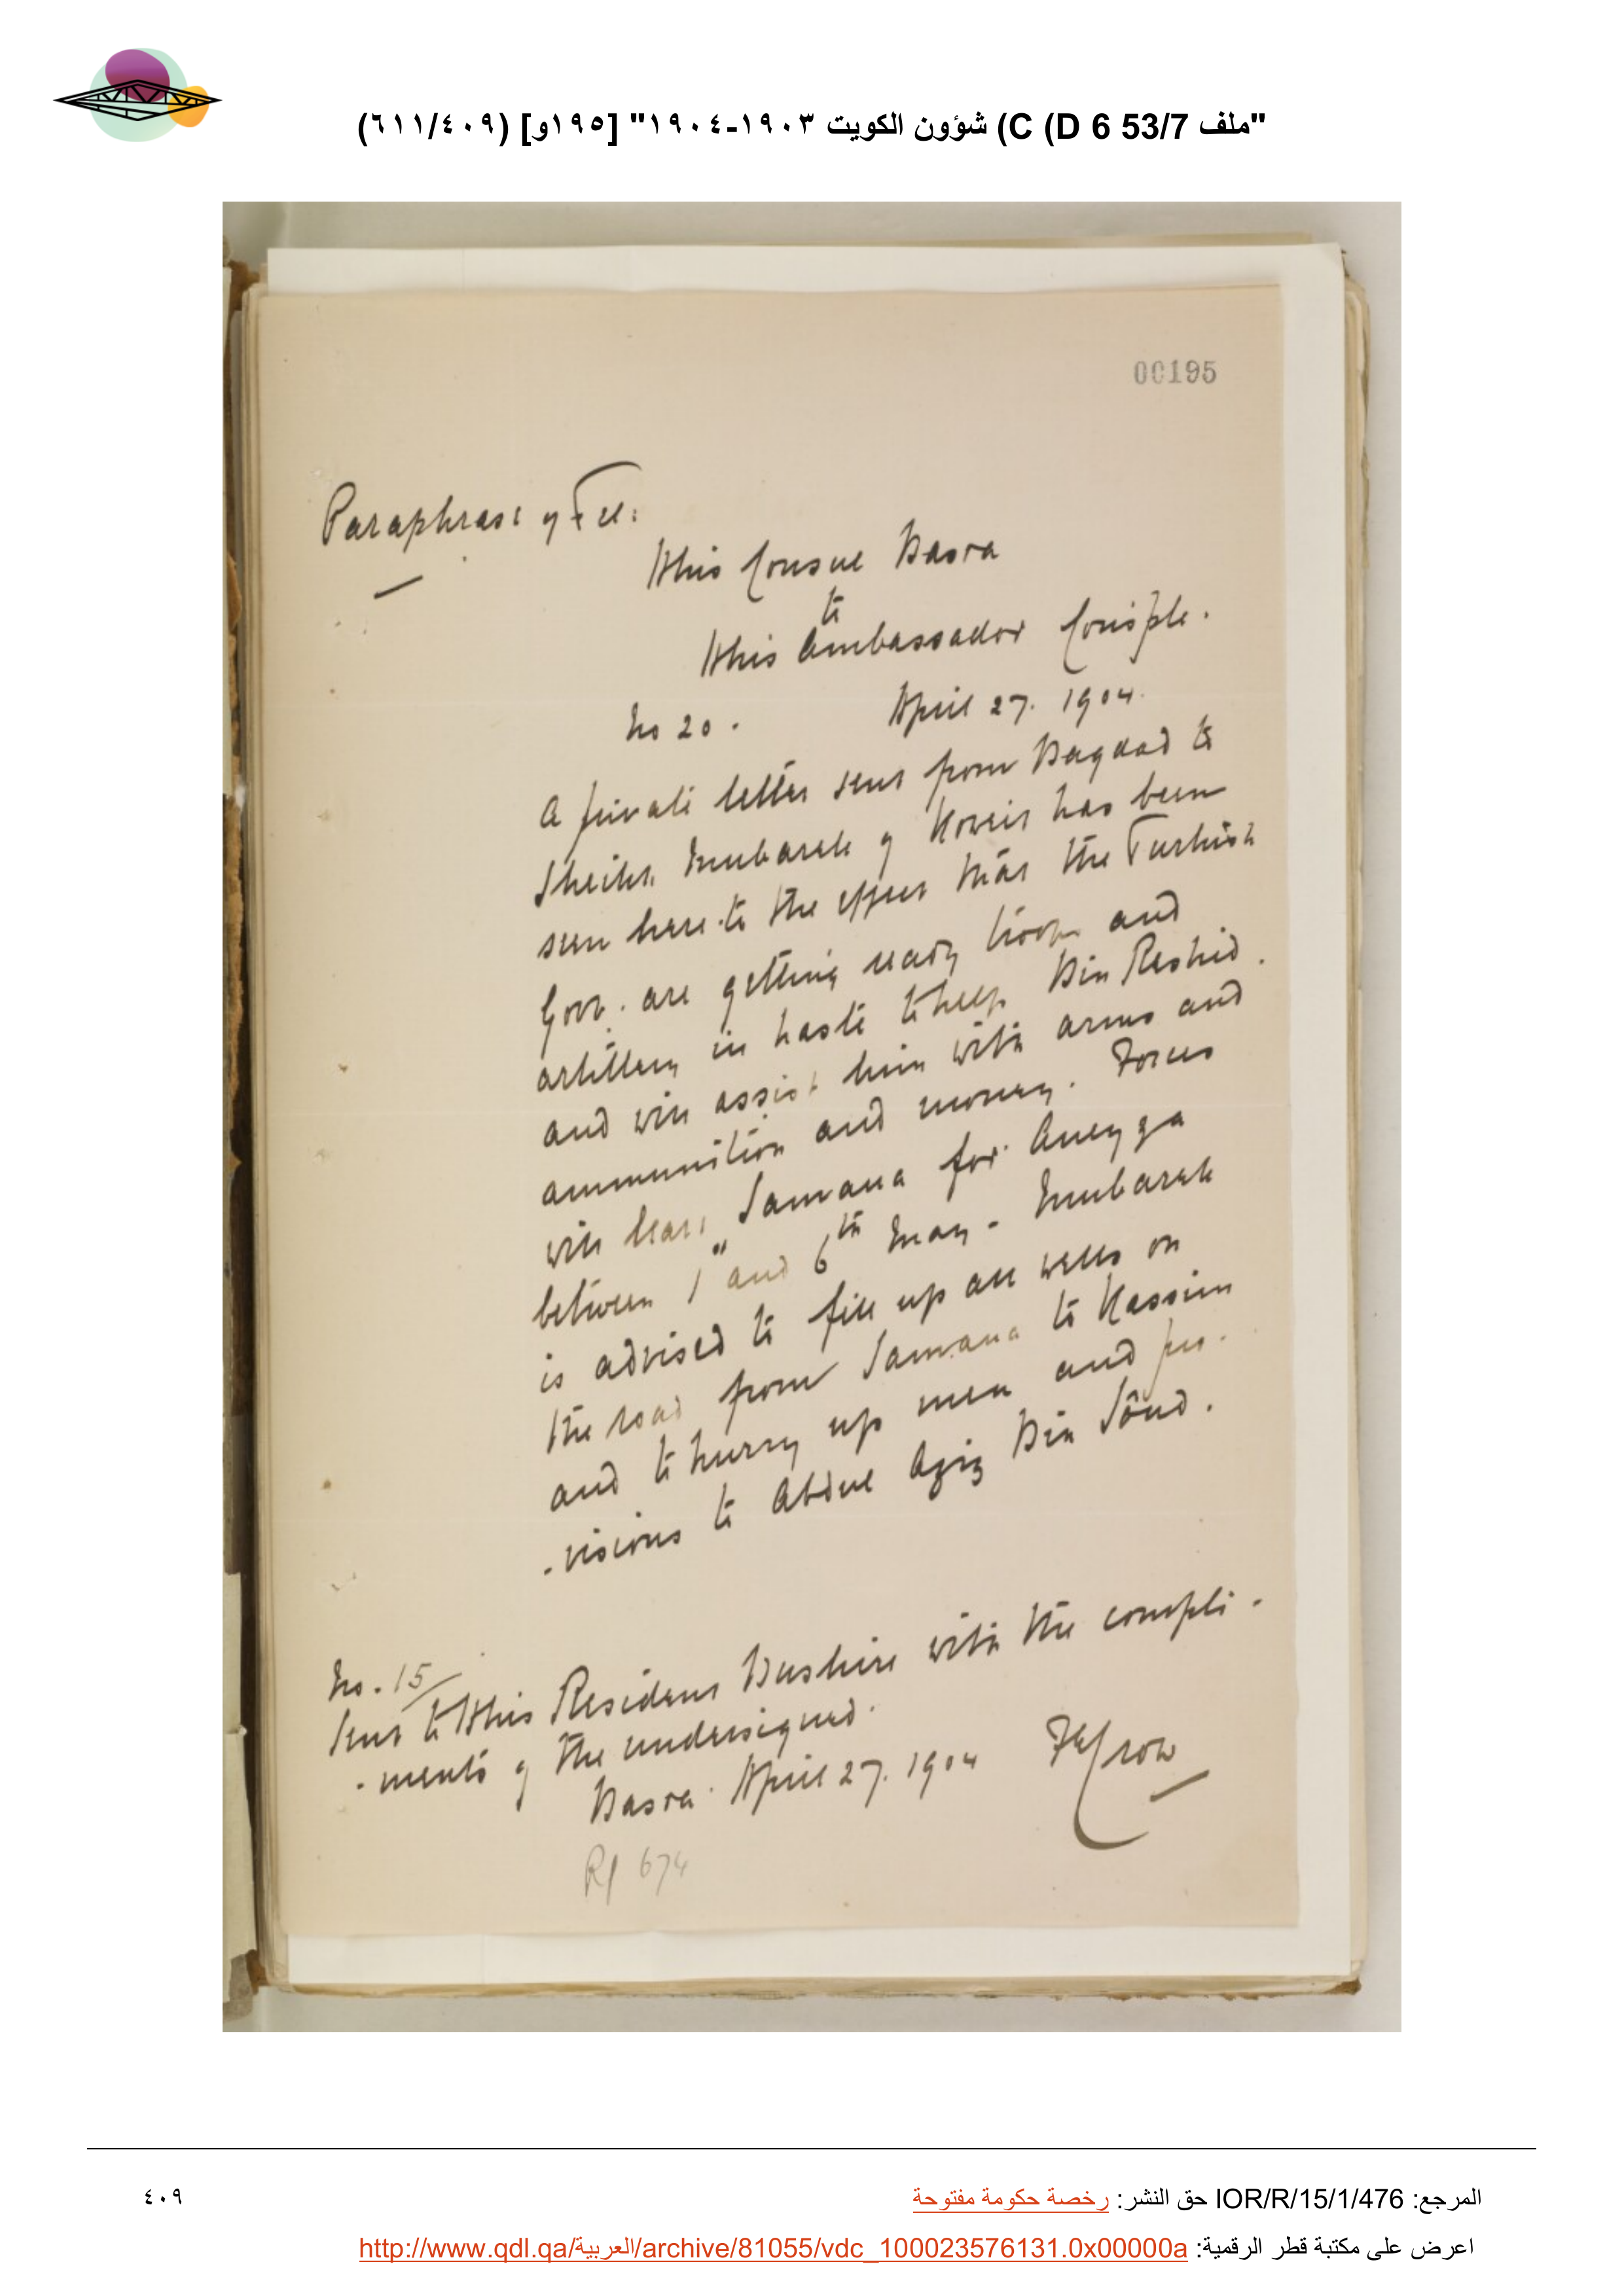 "ملف 53/7 C (D 6) شؤون الكويت ١٩٠٣-١٩٠٤" [١٩٥و] (٦١١/٤٠٩)
00195
Paraphrase of Tel:
HBMs Consul Basra
to
HBMs Ambassador Consple.
No 20. April 27. 1904.
A private letter sent from Bagdad to
Sheikh Mubarak of Koweit has been
seen here to the effect that the Turkish
Govt. are getting ready troops and
artillery in haste to help Bin Reshid
and will assist him with arms and
ammunition and money. Forces
will leave Samawa for Aneyza
between 1st and 6th May - Mubarak
is advised to fill up all wells on
the road from Samawa to Kassim
and to hurry up men and pro-
-visions to Abdul Aziz Bin Sâud.
No. 15
Sent to HBMs Resident Bushire with the compli-
-ments of the undersigned.
Basra April 27. 1904 FECrow
Rf 674
المرجع: IOR/R/15/1/476 حق النشر: رخصة حكومة مفتوحة
٤٠٩
اعرض على مكتبة قطر الرقمية: http://www.qdl.qa/العربية/archive/81055/vdc_100023576131.0x00000a